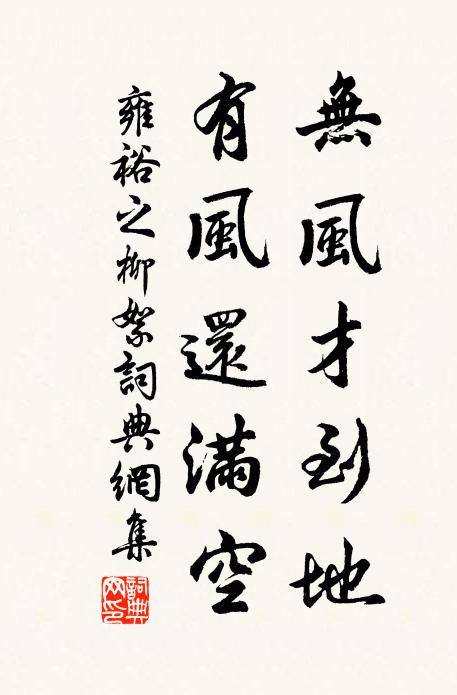 無風才到地
有風還滿空
雍裕之柳絮詞典網集
詞典
网印